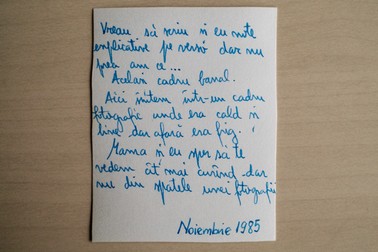 Vreau să scriu și eu note
explicative pe verso dar nu
prea am ce...
Același cadru banal.
Aici sîntem într-un cadru
fotografic unde era cald și
bine dar afară era frig.
Mama și eu sper să te
vedem cît mai curînd dar
nu din spatele unei fotografii
Noiembrie 1985